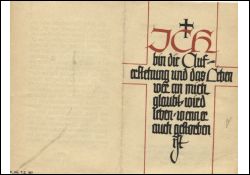 ICH
bin die Auf-
erstehung und das Leben
wer an mich
glaubt wird
leben, wenn er
auch gestorben
ist